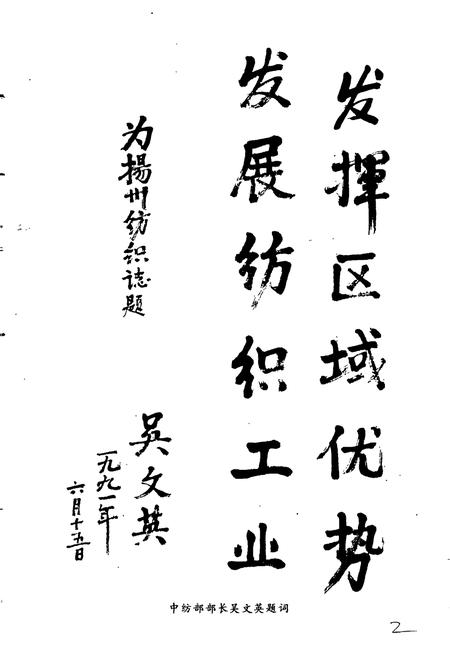 发揮区域优势
发展纺织工业
为揚州纺织誌题
吴文英
一九九一年
六月十五日
中纺部部长吴文英题词
2